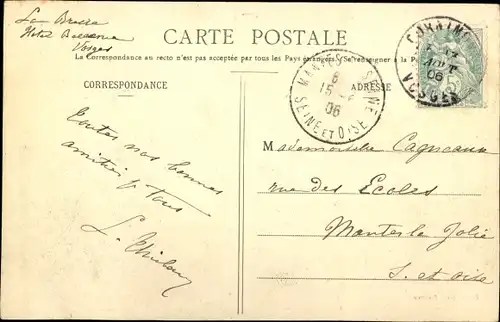 La Bresse
Hotel
Vosges
CARTE POSTALE
La Correspondance au recto n'est pas acceptée par tous les Pays étrangers. (Se renseigner à la Poste)
CORRESPONDANCE
ADRESSE
CORNIMONT
AOUT
06
VOSGES
MANTES SEINE
6
15
06
SEINE ET OISE
Toutes nos bonnes
amitiés à tous
L.
Mademoiselle Cagneaux
rue des Ecoles
Mantes la Jolie
S. et oise